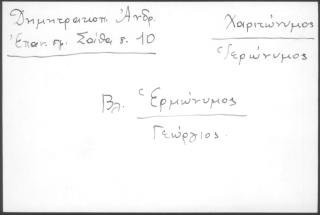 Δημητρακοπ. Ἀνδρ.
Ἐπαν. σ. Σάθα, σ. 10
Χαριτώνυμος
Ἱερώνυμος
Βλ. Ἑρμώνυμος
Γεώργιος.